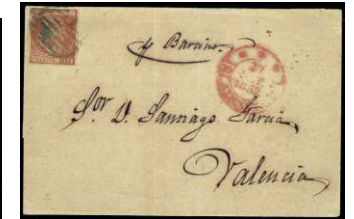 p Barcino
Sor D. Santiago Garcia
Valencia